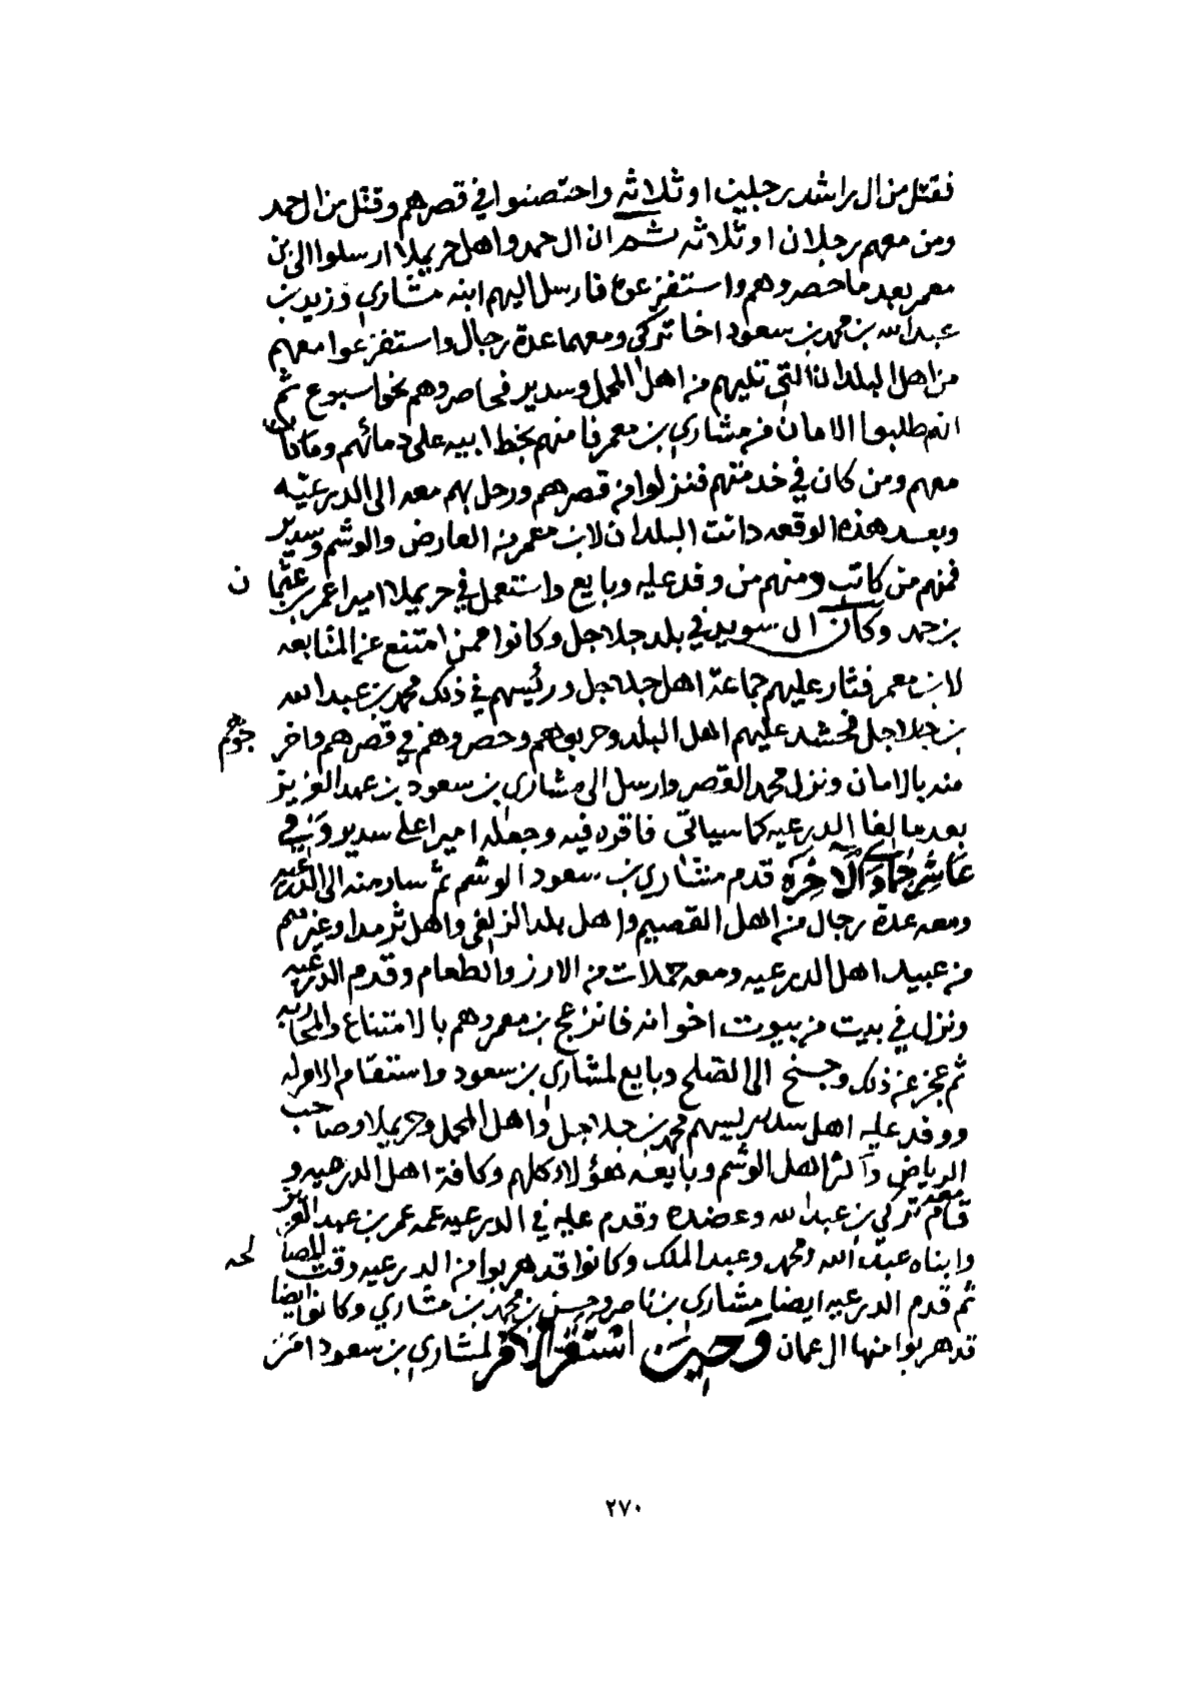 فقتل من ال راشد رجلين او ثلاثه واحتصنوا في قصرهم وقتل من ال حمد
ومن معهم رجلان او ثلاثه ثم ان ال حمد واهل حريملا ارسلوا الى بن
معمر بعد ما حصروهم واستفزعوه فارسل اليهم ابنه مشاري وزيد بن
عبدالله بن محمد بن سعود اخا تركي ومعهما عدة رجال واستفزعوا معهم
من اهل البلدان التي تليهم من اهل المحمل وسدير فحاصروهم نحو اسبوع ثم
انهم طلبوا الامان من مشاري بن معمر فامنهم بخط ابيه على دمائهم وما كان
معهم ومن كان في خدمتهم فنزلوا من قصرهم ورحل بهم معه الى الدرعيه
وبعد هذه الوقعه دانت البلدان لابن معمر من العارض والوشم وسدير
فمنهم من كاتب ومنهم من وفد عليه وبايع واستعمل في حريملا اميرا عمر بن عثما ن
بن حمد وكان ال سويد في بلد جلاجل وكانوا ممن امتنع عن المتابعه
لابن معمر فثار عليهم جماعة اهل جلاجل ورئيسهم في ذلك محمد بن عبدالله
بن جلاجل فحشد عليهم اهل البلد وحربوهم وحصروهم في قصرهم واخر جوهم
منه بالامان ونزل محمد القصر وارسل الى مشاري بن سعود بن عبدالعزيز
بعد ما لفا الدرعيه كما سياتي فاقره فيه وجعله اميرا على سدير وَفِي
عَاشِرِ جُمَادَى الْآخِرَه قدم مشاري بن سعود الوشم ثم سار منه الى الدرعيه
ومعه عدة رجال من اهل القصيم واهل بلد الزلفي واهل ثرمدا وغيرهم
من عبيد اهل الدرعيه ومعه حملات من الارز والطعام وقدم الدرعيه
ونزل في بيت من بيوت اخوانه فانزعج بن معمر وهم بالامتناع والمحاربه
ثم عجز عن ذلك وجنح الى الصلح وبايع لمشاري بن سعود واستقام الامر له
ووفد عليه اهل سدير رييسهم محمد بن جلاجل واهل المحمل وحريملا وصاحب
الرياض واكثر اهل الوشم وبايعه هؤلاء كلهم وكافة اهل الدرعيه و
قام معه تركي بن عبدالله وعضده وقدم عليه في الدرعيه عمه عمر بن عبدالعزيز
وابناه عبدالله ومحمد وعبدالملك وكانوا قد هربوا من الدرعيه وقت المصا لحه
ثم قدم الدرعيه ايضا مشاري بن ناصر وحسن بن محمد بن مشاري وكانوا ايضا
قد هربوا منها ال عمان وَحِيْنَ اسْتَقَرَّ الْأَمْرُ لمشاري بن سعود امر
٢٧٠